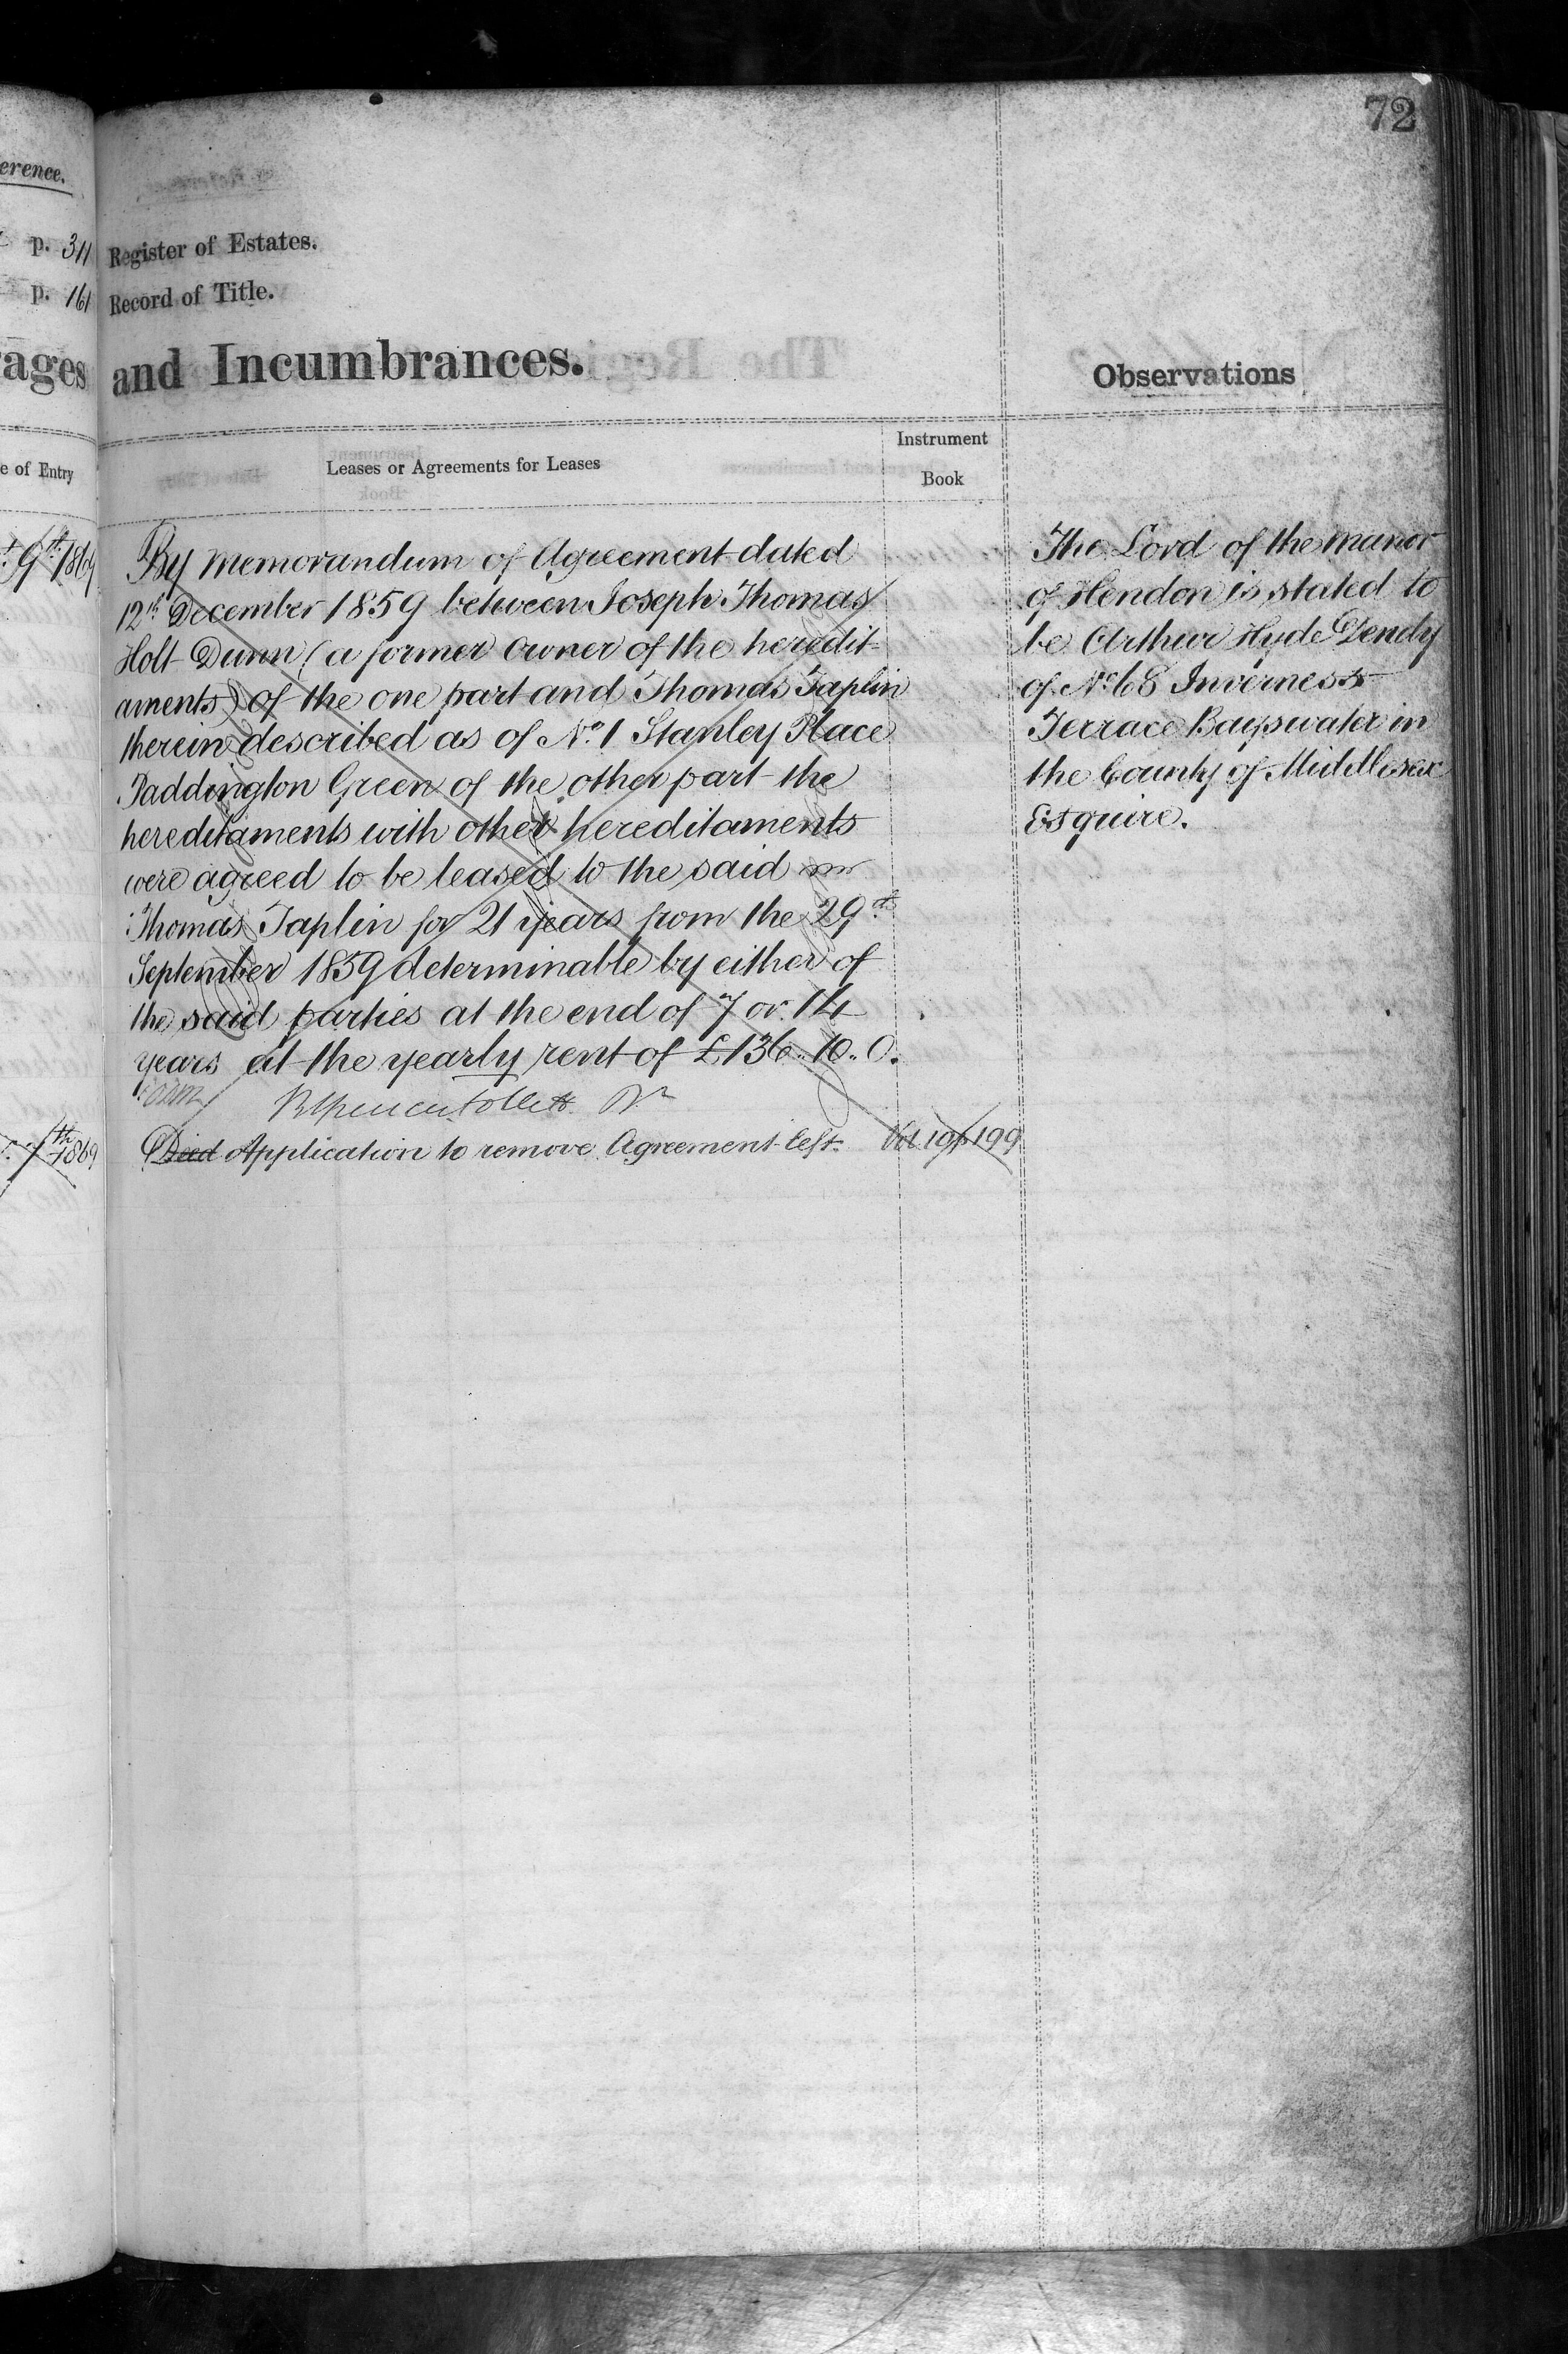 72
erence.
p. 311
p. 161
Register of Estates.
Record of Title.
ages
and Incumbrances.
Observations
e of Entry
Leases or Agreements for Leases
Instrument
Book
9th 1869
By Memorandum of Agreement dated
12th December 1859 between Joseph Thomas
Holt Dunn (a former owner of the heredit-
aments) of the one part and Thomas Taplin
therein described as of No. 1 Stanley Place
Paddington Green of the other part the
hereditaments with other hereditaments
were agreed to be leased to the said
Thomas Taplin for 21 years from the 29th
September 1859 determinable by either of
the said parties at the end of 7 or 14
years at the yearly rent of £136.. 10.. 0.
7th 1869
Died Application to remove Agreement left. Vol 10 p 199
The Lord of the manor
of Hendon is stated to
be Arthur Hyde Dendy
of No. 68 Inverness
Terrace Bayswater in
the County of Middlesex
Esquire.